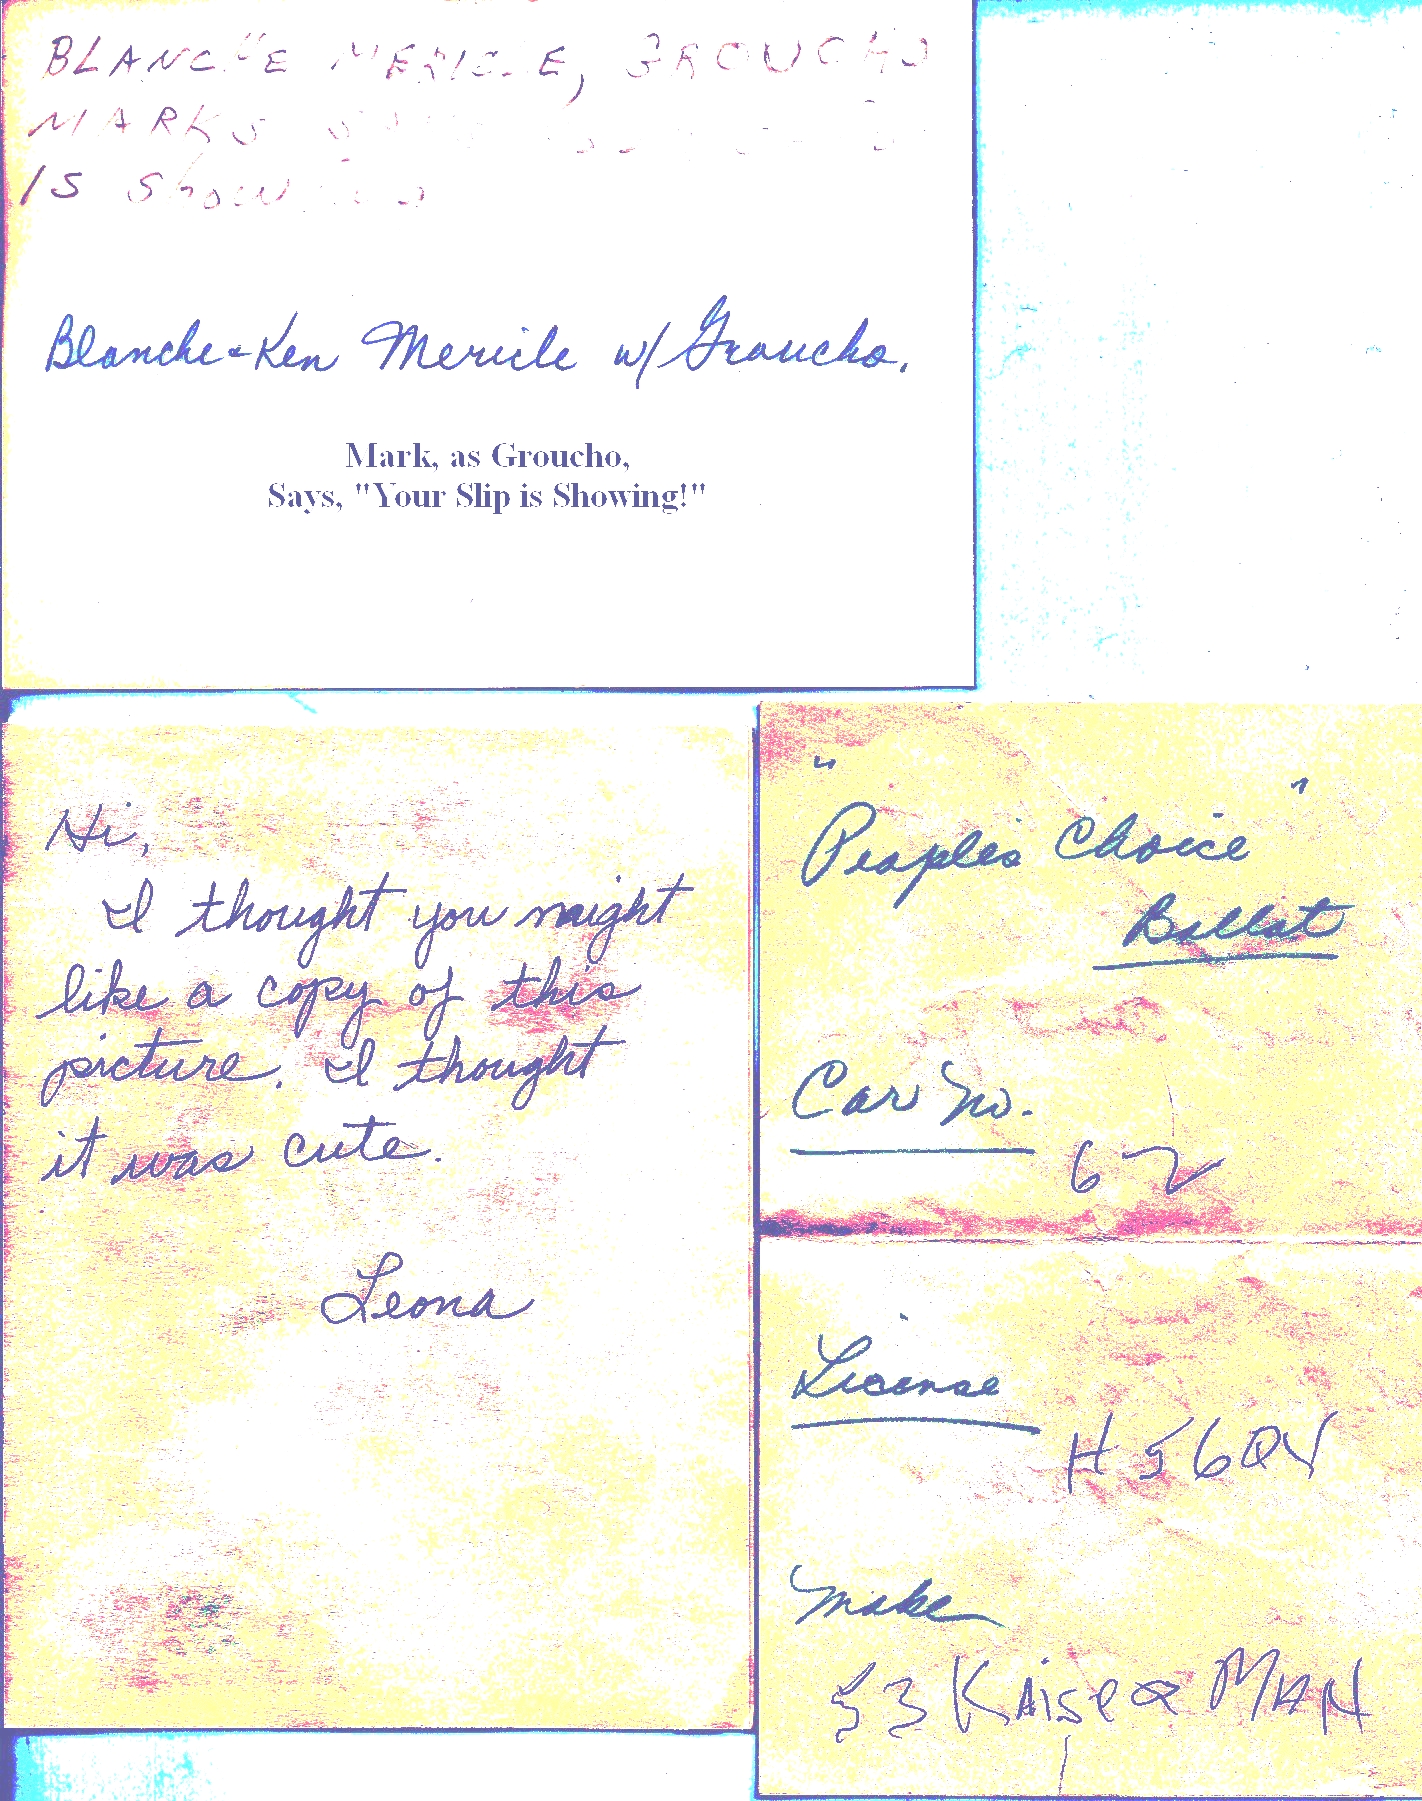 BLANCHE MERICLE, GROUCHO
MARKS
IS SHOWING
Blanche & Ken Mericle w/ Groucho.
Mark, as Groucho,
Says, "Your Slip is Showing!"
Hi,
I thought you might
like a copy of this
picture. I thought
it was cute.
Leona
"Peoples Choice"
Ballot
Car No.
62
License
H 56QV
Make
53 Kaiser MAN